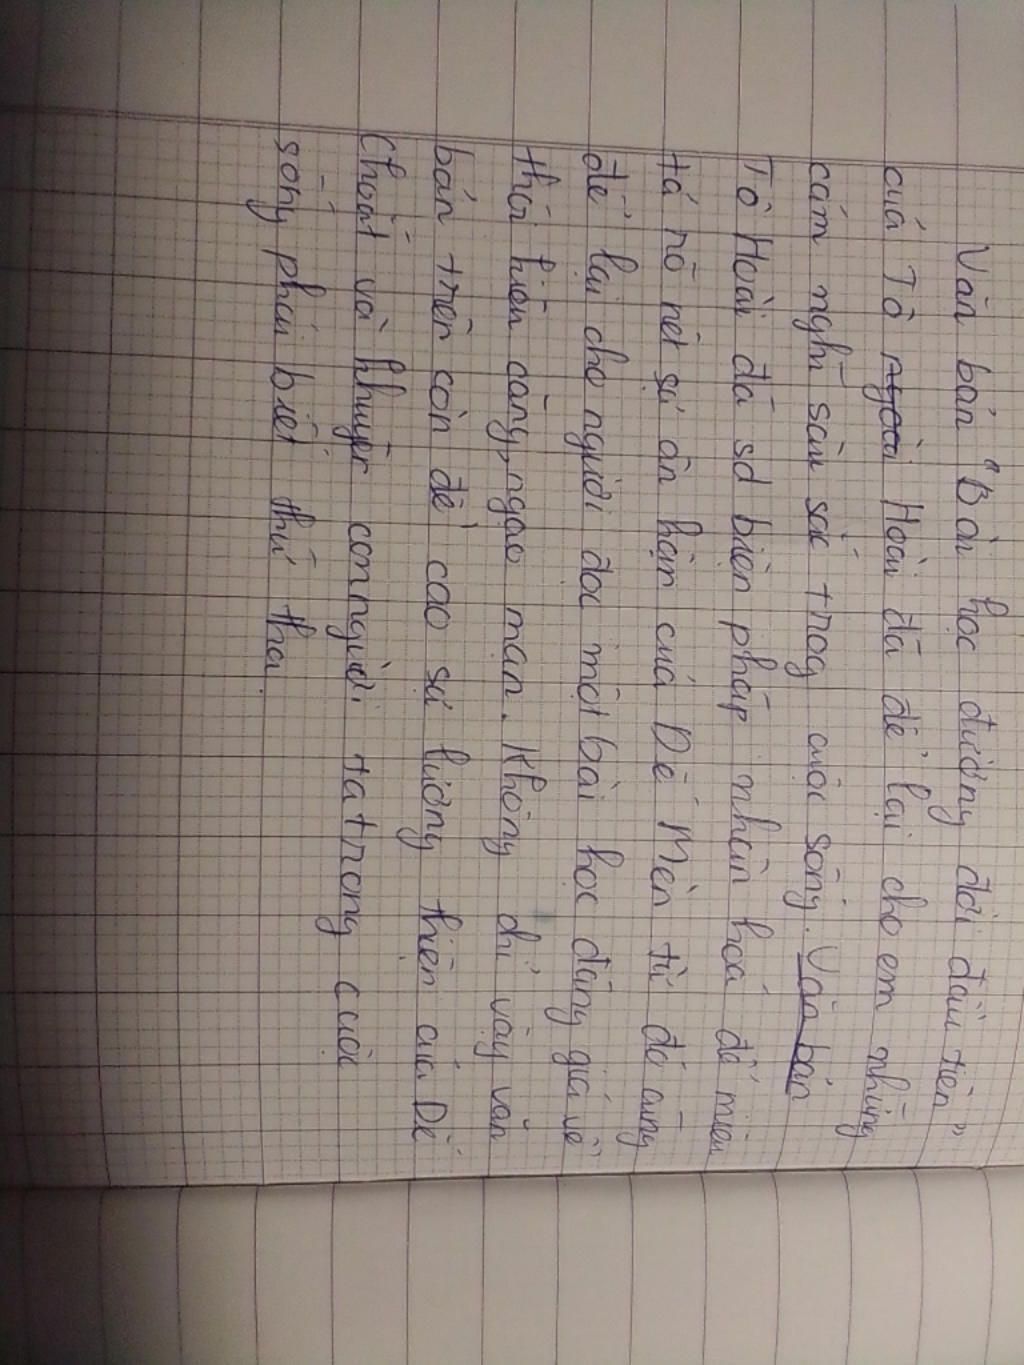 Văn bản "Bài học đường đời đầu tiên"
của Tô Hoài đã để lại cho em những
cảm nghĩ sâu sắc trog cuộc sống. Văn bản
Tô Hoài đã sd biện pháp nhân hoá để miêu
tả rõ nét sự ân hận của Dế Mèn từ đó cũng
để lại cho người đọc một bài học đáng giá về
thói hênh, ngạo mạn. Không chỉ vậy văn
bản trên còn đề cao sự lương thiện của Dế
Choắt và khuyên con người ta trong cuộc
sống phải biết thứ tha.